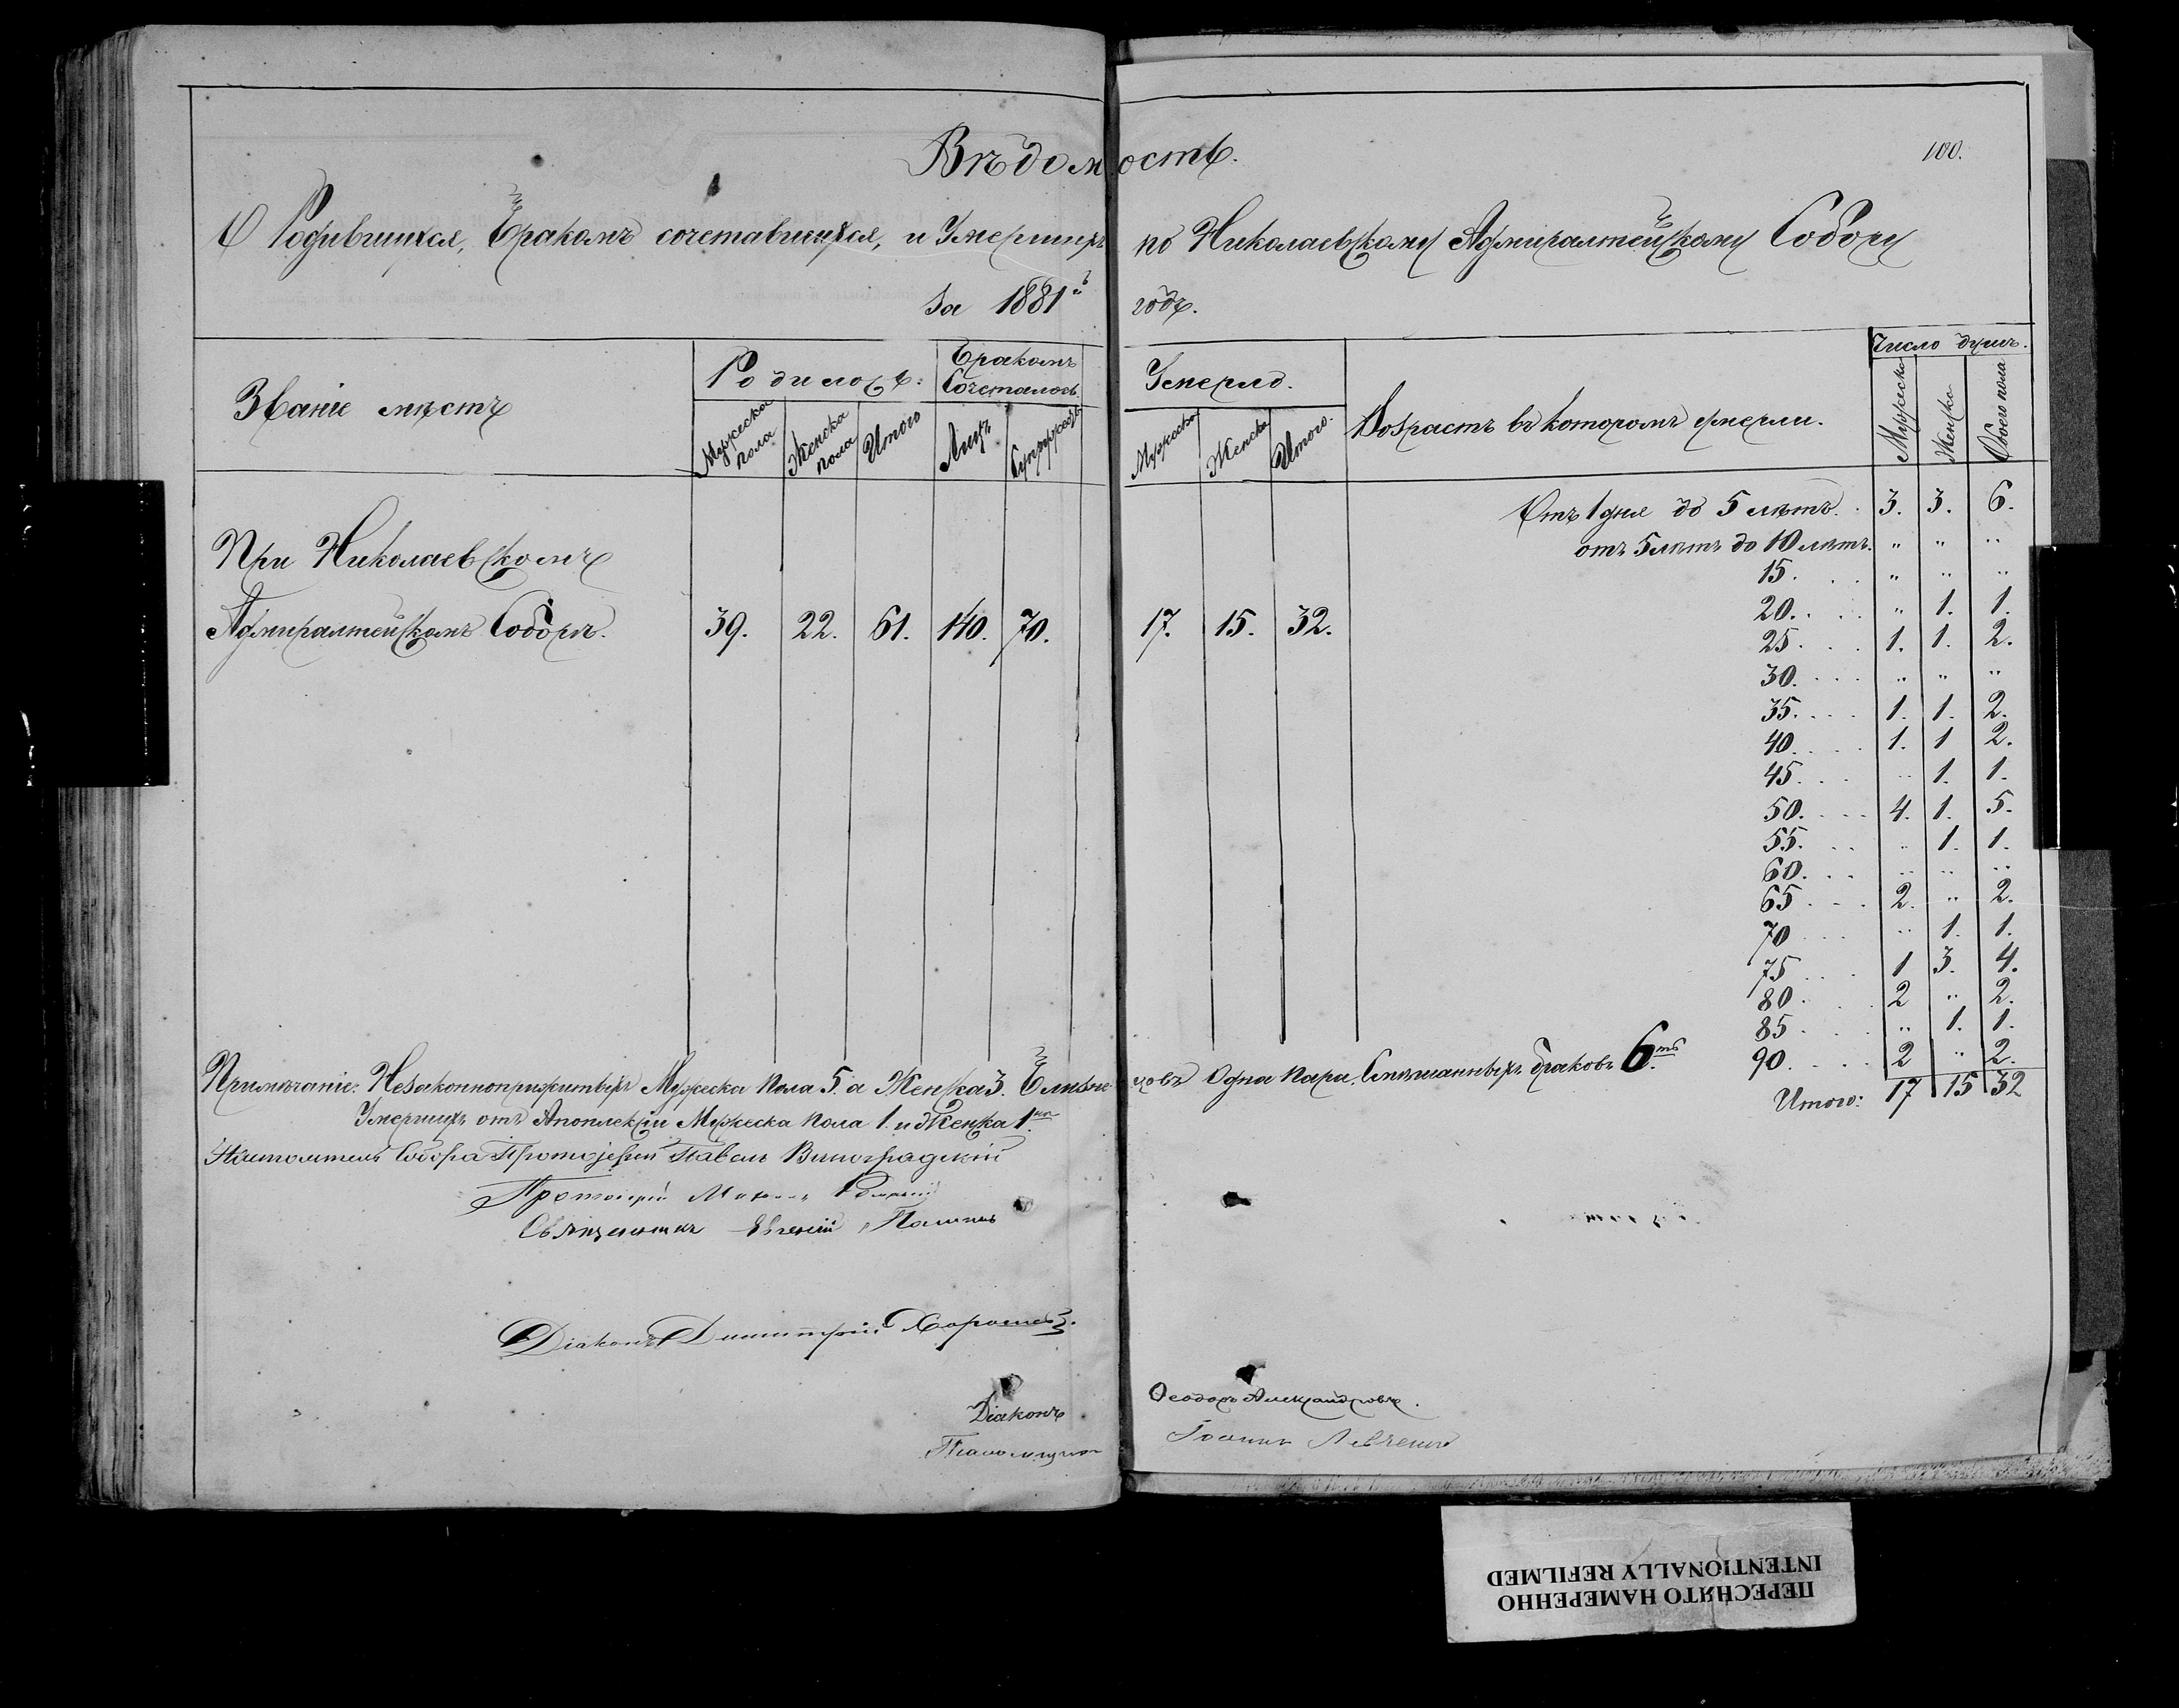 Вѣдомость.
100.
О Родившихся, Бракомъ сочетавшихся, и Умершихъ по Николаевскому Адмиралтейскому Собору
за 1881й годъ.
Званіе мѣстъ
Родилось:
Мужеска пола
Женска пола
Итого
Бракомъ Сочеталось
Лицъ
Супружествъ
Умерло.
Мужеска
Женска
Итого.
Возрастъ въ которомъ умерли.
Число душъ.
Мужеска
Женска
Обоего пола
При Николаевскомъ
Адмиралтейскомъ Соборѣ. 39. 22. 61. 140. 70. 17. 15. 32.
Отъ 1 дня до 5 лѣтъ. 3. 3. 6.
отъ 5 лѣтъ до 10 лѣтъ. " " "
15. . . . " " "
20. . . . " 1. 1.
25. . . . 1. 1. 2.
30. . . . " " "
35. . . . 1. 1. 2.
40. . . . 1. 1 2.
45. . . . " 1. 1.
50. . . . 4. 1. 5.
55. . . . " 1. 1.
60. . . . " " "
65 . . . 2. " 2.
70 . . . " 1. 1.
75 . . . 1 3. 4.
80 . . . 2 " 2.
85 . . . " 1. 1.
90. . . . 2 " 2.
Итого: 17 15 32
Примѣчаніе: Незаконноприжитыхъ Мужеска пола 5. а Женска 3. Близнецовъ Одна пара. Смѣшанныхъ браковъ 6.ть
Умершихъ отъ Апоплексіи Мужеска пола 1. и Женска 1.на
Настоятель Собора Протоіерей Павелъ Виноградскій
Протоіерей
Священникъ Евгеній
Діаконъ Димитрій Хорошевъ.
Діаконъ Ѳеодоръ Александровъ.
Псаломщикъ Іоаннъ Левченко
ПЕРЕСНЯТО НАМЕРЕННО
INTENTIONALLY REFILMED